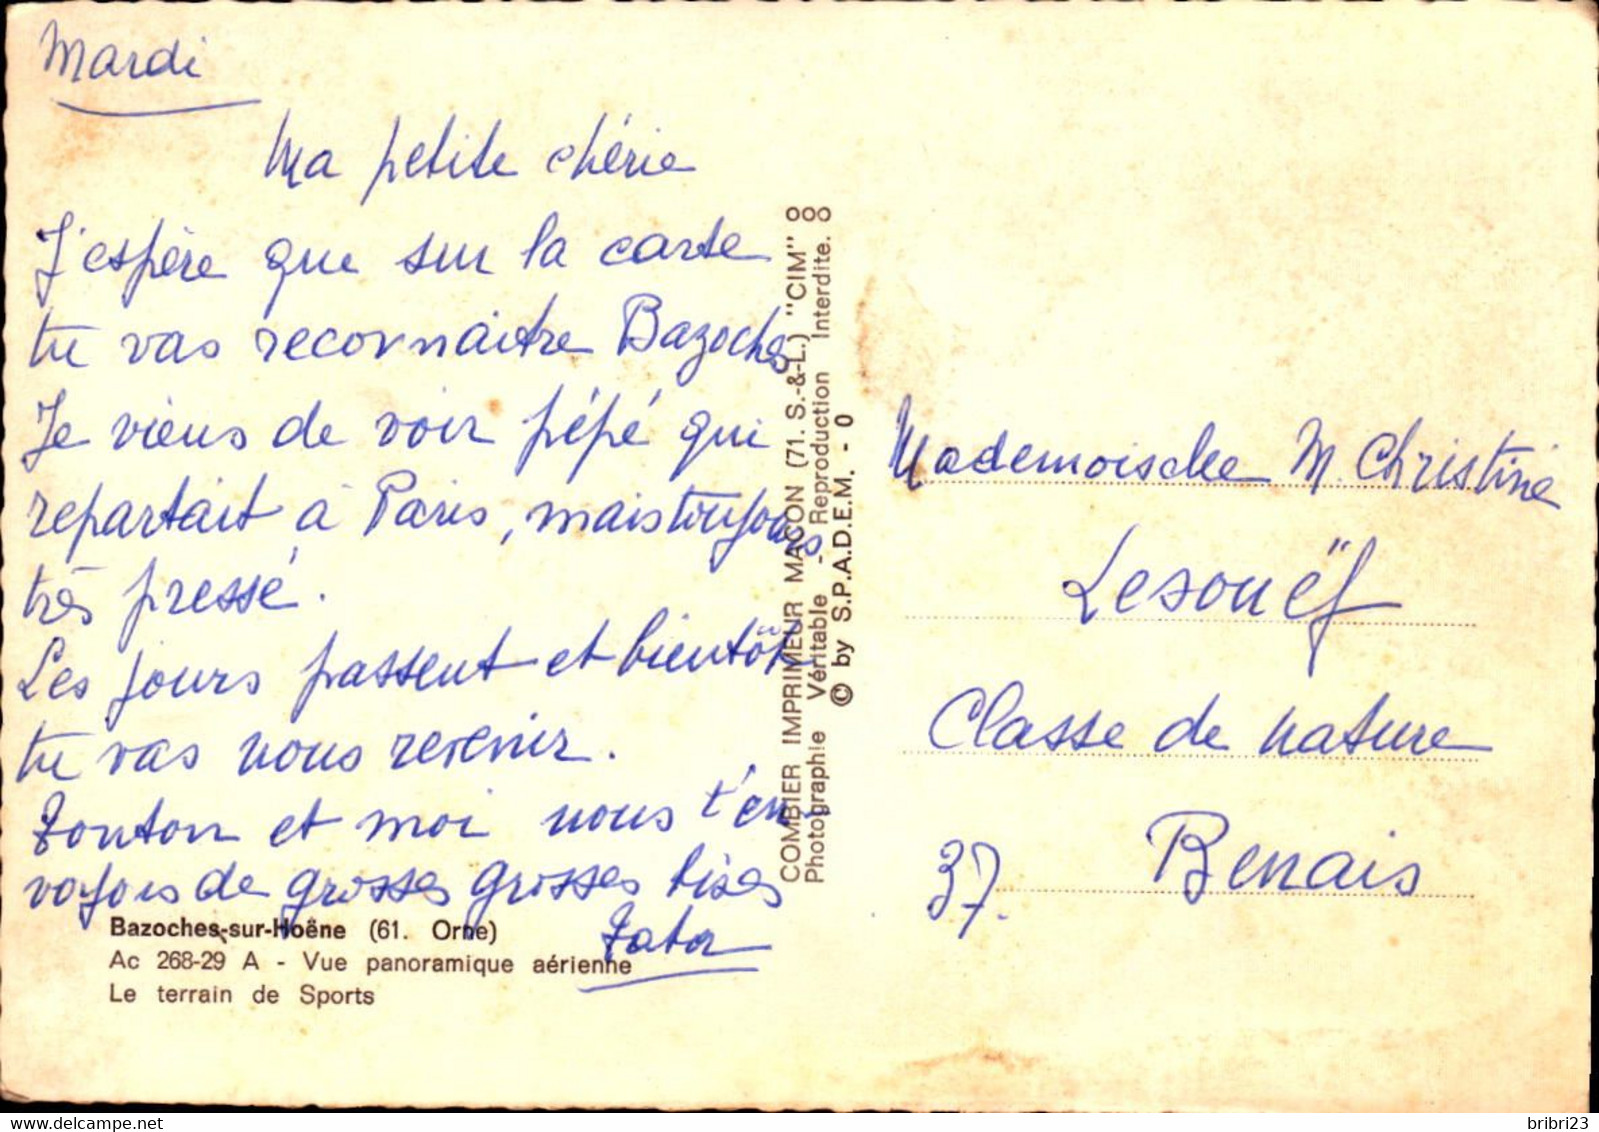 Mardi
Ma petite chérie
J'espère que sur la carte
tu vas reconnaitre Bazoches
Je viens de voir pépé qui
repartait à Paris, mais toujours
très pressé.
Les jours passent et bientôt
tu vas nous revenir.
Tonton et moi nous t'en
voyons de grosses grosses bises
Tata
Bazoches-sur-Hoëne (61. Orne)
Ac 268-29 A - Vue panoramique aérienne
Le terrain de Sports
COMBIER IMPRIMEUR MACON (71. S.-&-L.) "CIM"
Photographie Véritable - Reproduction Interdite.
© by S.P.A.D.E.M. - 0
Mademoiselle M. Christine
Lesouëf
Classe de nature
37. Benais
bribri23